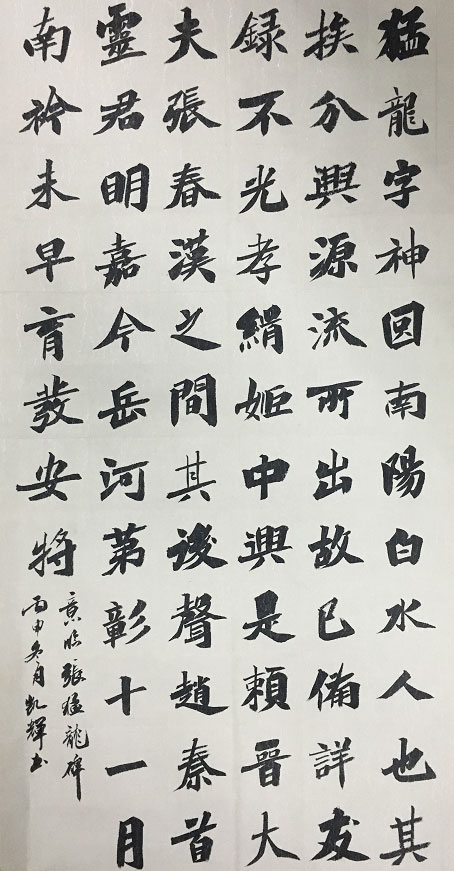 猛龍字神回南陽白水人也其
挨分興源流所出故已備詳友
録不光孝緝姬中興是賴晉大
夫張春漢之間其後聲趙秦首
靈君明嘉今岳河第彰十一月
南衿未早育發安將
意臨張猛龍碑
丙申冬月凱輝書